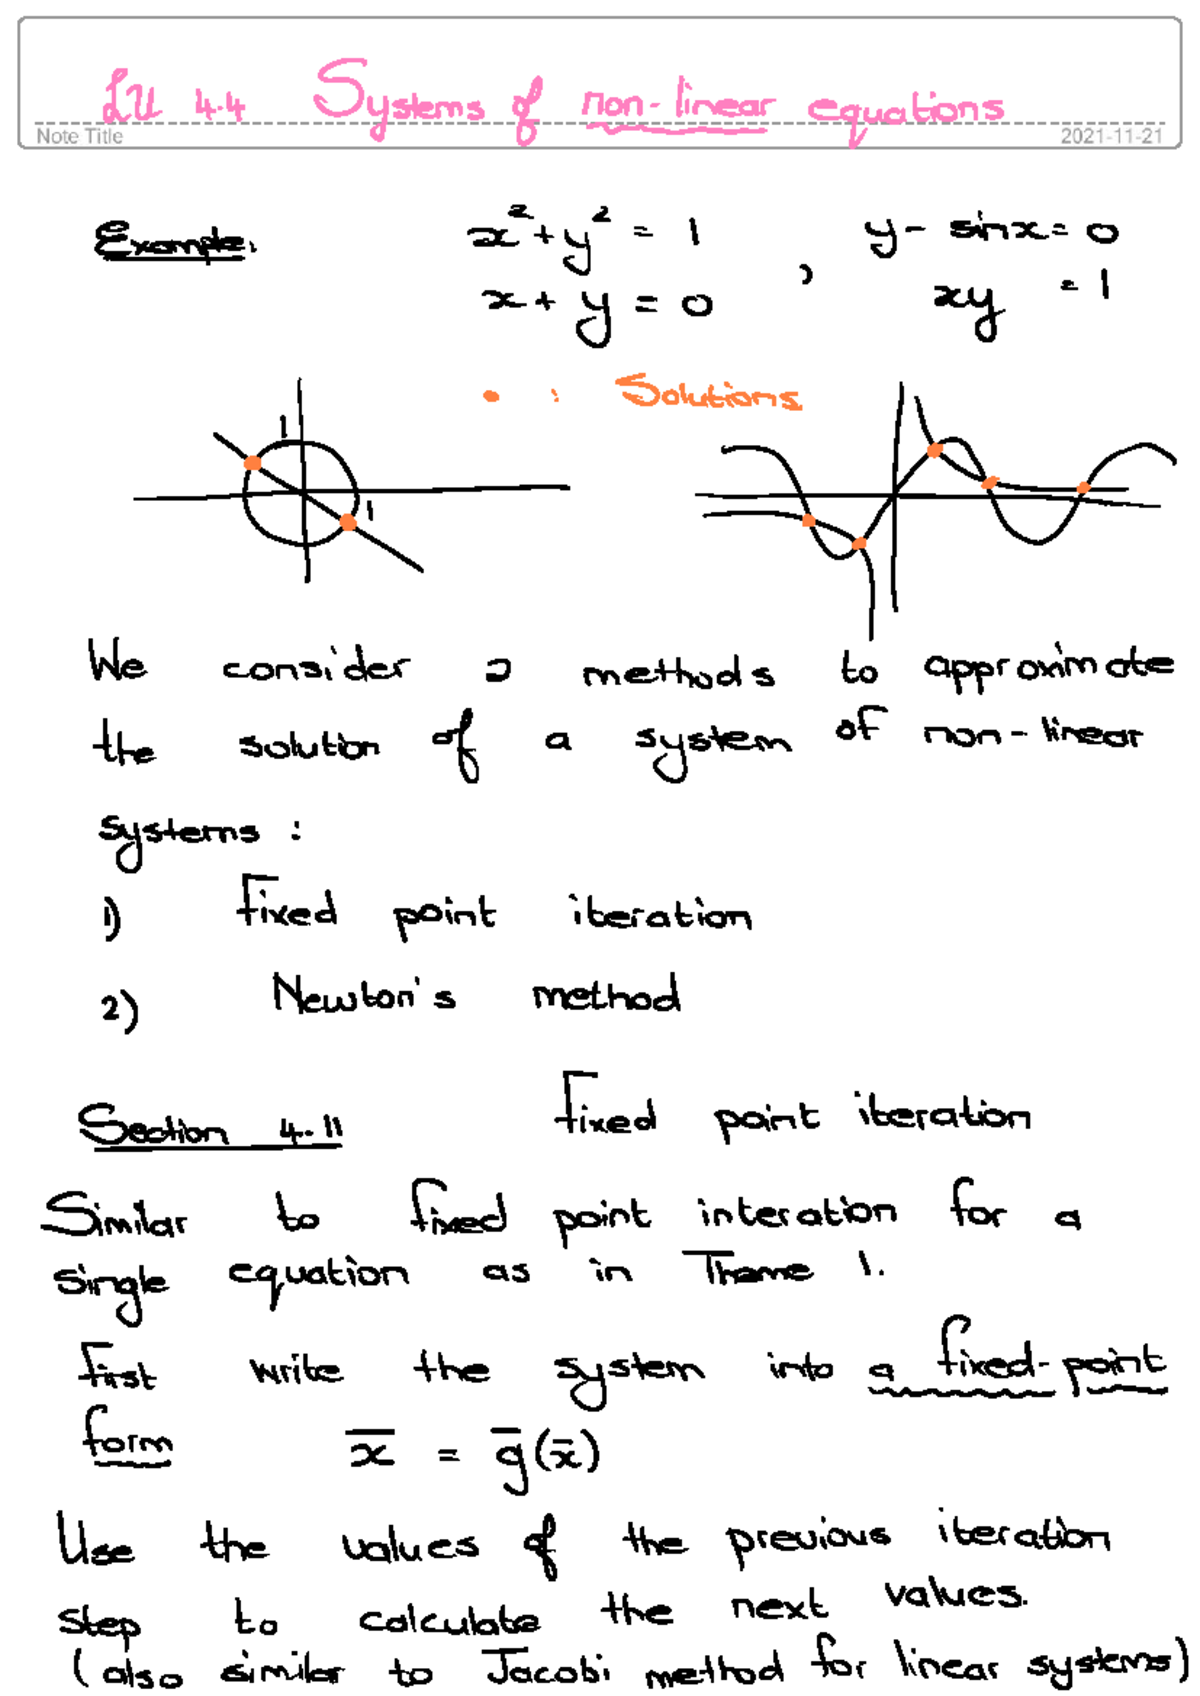 LU 4.4 Systems of non-linear equations
Note Title 2021-11-21
Example: x² + y² = 1 y - sinx = 0
x + y = 0 , xy = 1
• : Solutions
1
1
We consider 2 methods to approximate
the solution of a system of non-linear
systems :
1) Fixed point iteration
2) Newton's method
Section 4.11 Fixed point iteration
Similar to fixed point interation for a
single equation as in Theme 1.
First write the system into a fixed-point
form x̅ = g̅(x̅)
Use the values of the previous iteration
step to calculate the next values.
(also similar to Jacobi method for linear systems)